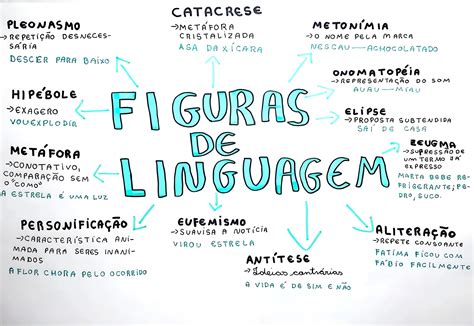 PLEONASMO
→REPETIÇÃO DESNECES-
SÁRIA
DESCER PARA BAIXO
CATACRESE
→METÁFORA
CRISTALIZADA
ASA DA XÍCARA
METONÍMIA
→O NOME PELA MARCA
NESCAU→ACHOCOLATADO
ONOMATOPÉIA
→REPRESENTAÇÃO DO SOM
AUAU—MIAU
HIPÉBOLE
→EXAGERO
VOU EXPLODIR
ELIPSE
→PROPOSTA SUBTENDIDA
SAÍ DE CASA
FIGURAS
DE
LINGUAGEM
ZEUGMA
→SUPRESSÃO DE
UM TERMO JÁ
EXPRESSO
MARTA BEBE RE-
FRIGERANTE; PE-
DRO, SUCO.
METÁFORA
→CONOTATIVO,
COMPARAÇÃO SEM
O "COMO"
A ESTRELA É UMA LUZ
PERSONIFICAÇÃO
→CARACTERÍSTICA ANI-
MADA PARA SERES INANI-
MADOS
A FLOR CHORA PELO OCORRIDO
EUFEMISMO
→SUAVISA A NOTÍCIA
VIROU ESTRELA
ANTÍTESE
→Ideias contrárias
A VIDA É DE SIM E NÃO
ALITERAÇÃO
→REPETE CONSOANTE
FATIMA FICOU COM
FÁBIO FACILMENTE